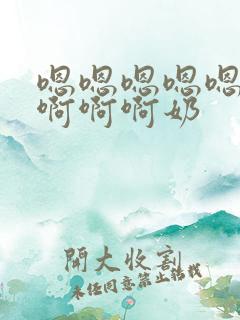 嗯嗯嗯嗯嗯
啊啊啊奶
開大收割
未经同意禁止转载